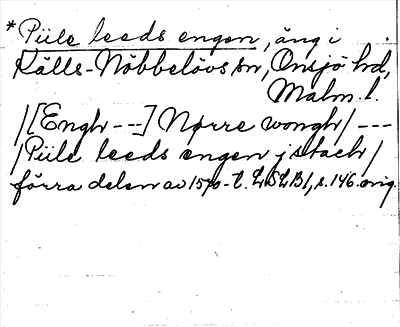 * Piile leeds engen, äng i
Källs-Nöbbelövs sn, Onsjö hd,
Malm. l.
/[Engh ---] Nørre wongh/ ---
/Piile leeds engen j stach/
förra delen av 1570-t. LSLB1, s. 146. orig.